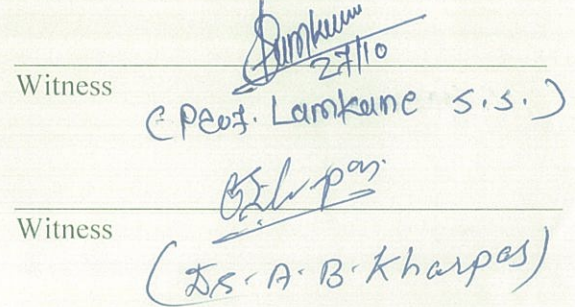 27/10
Witness
(Prof. Lamkane S.S.)
Witness
(Dr. A. B. Kharpas)